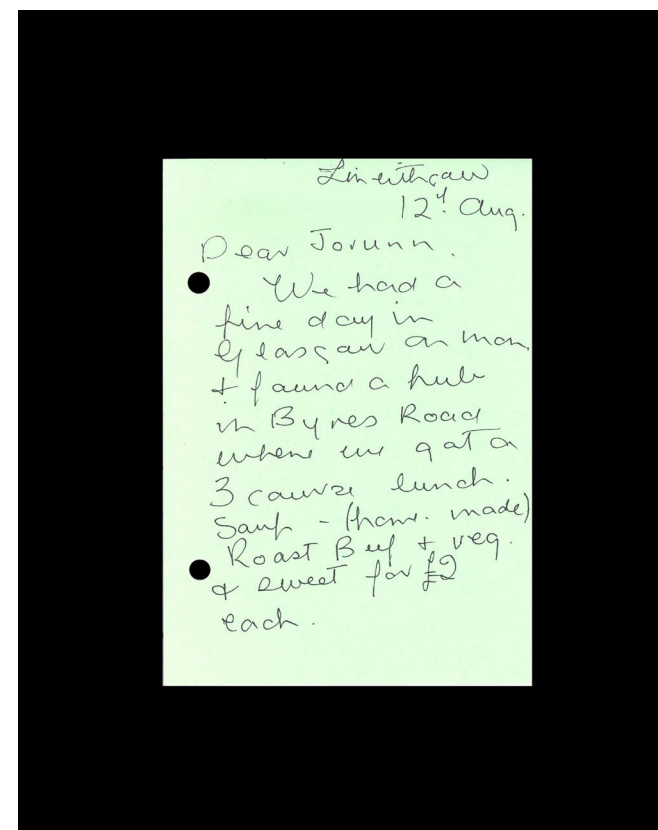 Linlithgow
12th Aug.
Dear Jorunn.
We had a
fine day in
Glasgow on Mon
+ found a pub
in Byres Road
where we got a
3 course lunch.
Soup - (home. made)
Roast Beef + veg.
& sweet for £2
each.